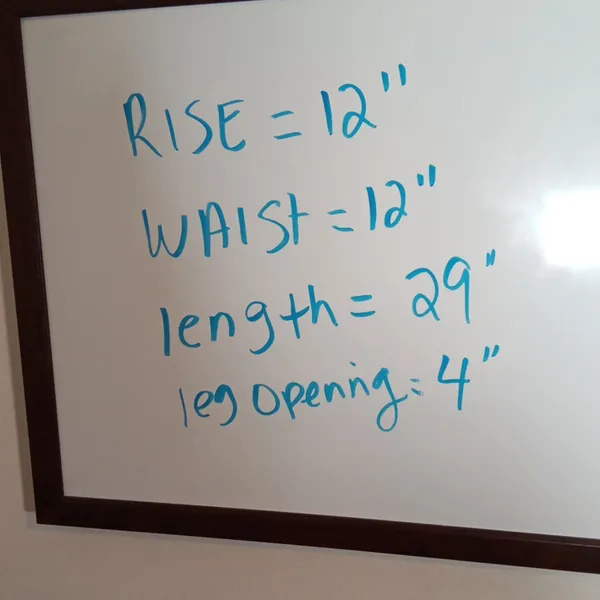 RISE = 12"
WAISt = 12"
length = 29"
leg opening: 4"